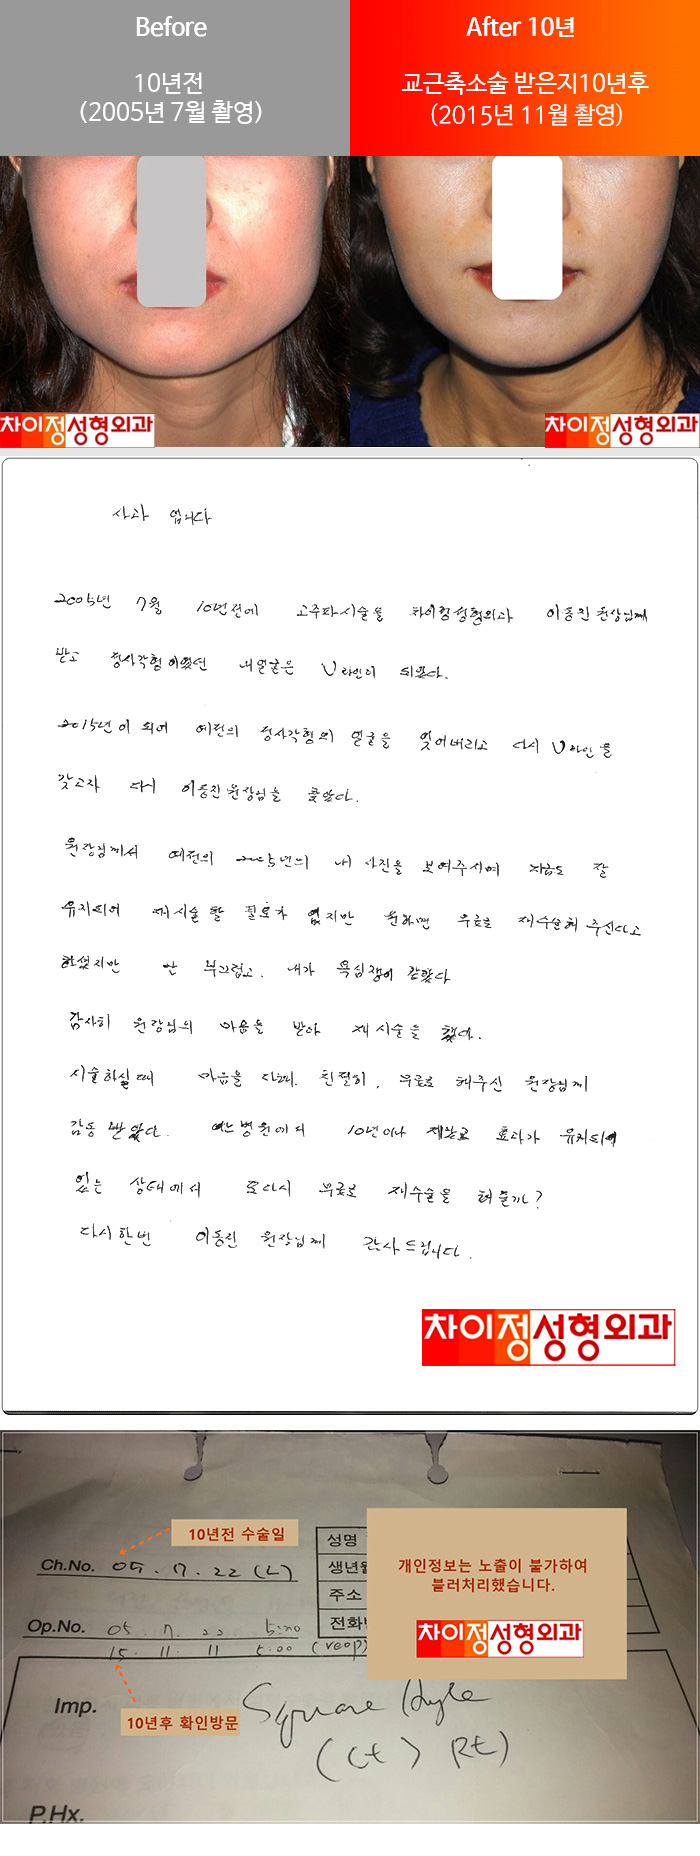 Before
After 10년
10년전
(2005년 7월 촬영)
교근축소술 받은지10년후
(2015년 11월 촬영)
차이정성형외과
차이정성형외과
사과 입니다
2005년 7월 10년전에 고주파시술을 차이정성형외과 이동진 원장님께
받고 정사각형이었던 내얼굴은 U라인이 되었다.
2015년이 되어 예전의 정사각형의 얼굴을 잊어버리고 다시 U라인을
갖고자 다시 이동진 원장님을 찾았다.
원장님께서 예전의 2005년의 내 사진을 보여주시며 지금도 잘
유지되어 재시술 할 필요가 없지만 원하면 무료로 재수술해 주신다고
하셨지만 난 부끄럽고. 내가 욕심쟁이 같았다
감사히 원장님의 마음을 받아 재시술을 했다.
시술하실때 마음을 다해. 친절히. 무료로 해주신 원장님께
감동 받았다. 어느병원에서 10년이나 효과가 유지되어
있는 상태에서 또다시 무료로 재수술을 해 줄까?
다시한번 이동진 원장님께 감사드립니다.
차이정성형외과
10년전 수술일
성명
Ch.No. 05. 7. 22 (L)
생년월
개인정보는 노출이 불가하여
불러처리했습니다.
주소
Op.No. 05 . 7 . 22 5:00
전화번
차이정성형외과
15. 11. 11 5:00 (reop)
Imp.
10년후 확인방문
Square Angle
(Lt > Rt)
P.Hx.